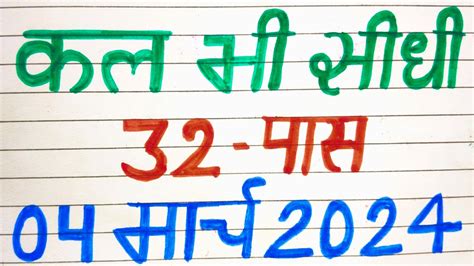 कल भी सीधी
32-पास
04 मार्च 2024